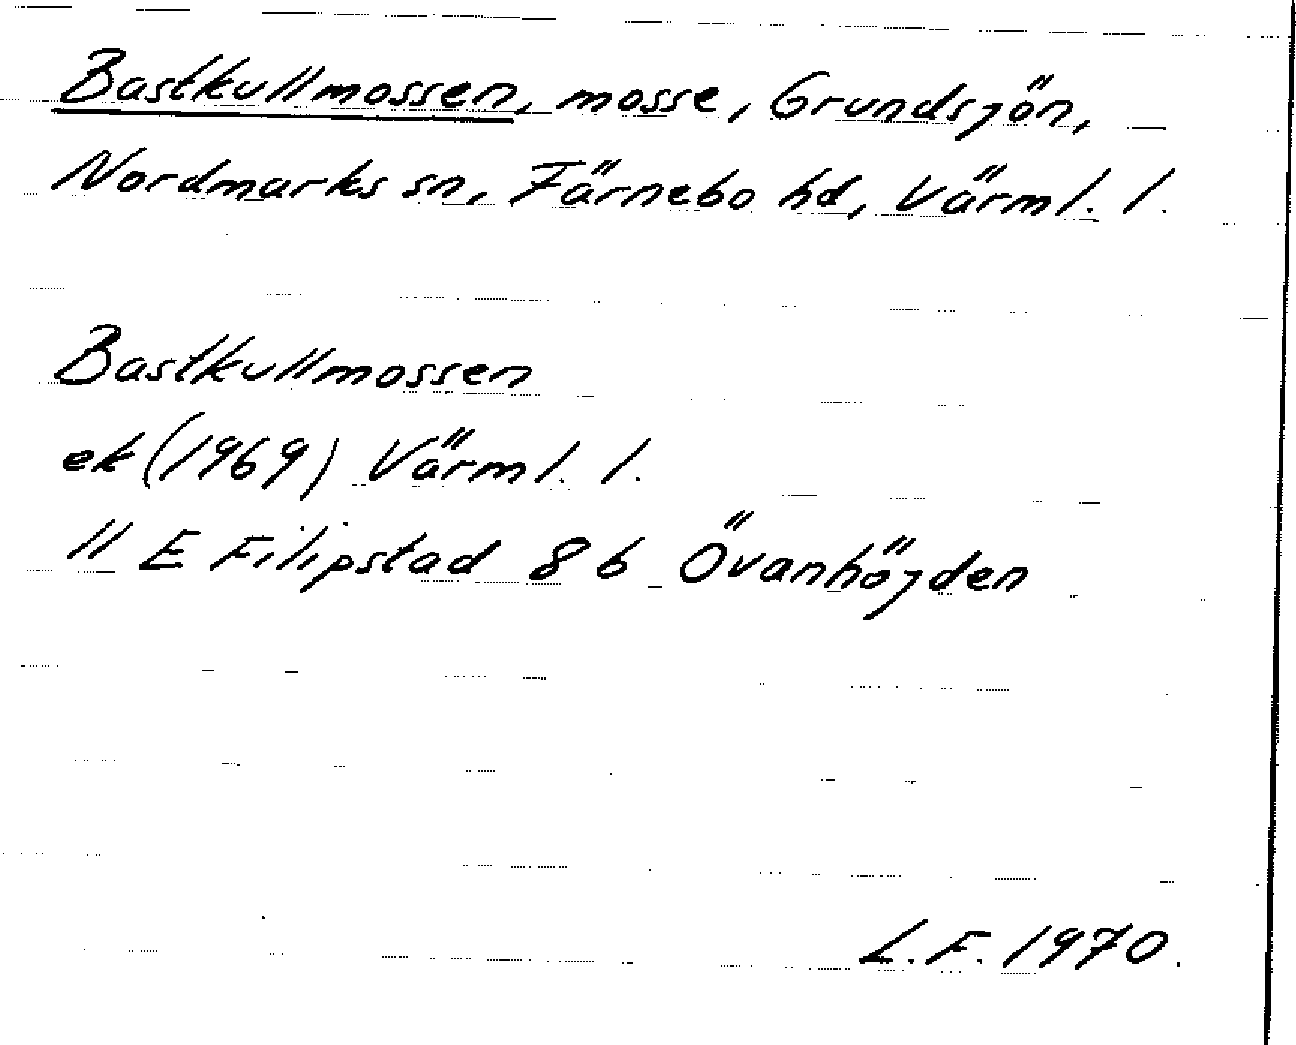 Bastkullmossen, mosse, Grundsjön,
Nordmarks sn, Färnebo hd, Värml. l.
Bastkullmossen
ek (1969) Värml. l.
11 E Filipstad 8 b Övanhöjden
L.F. 1970.